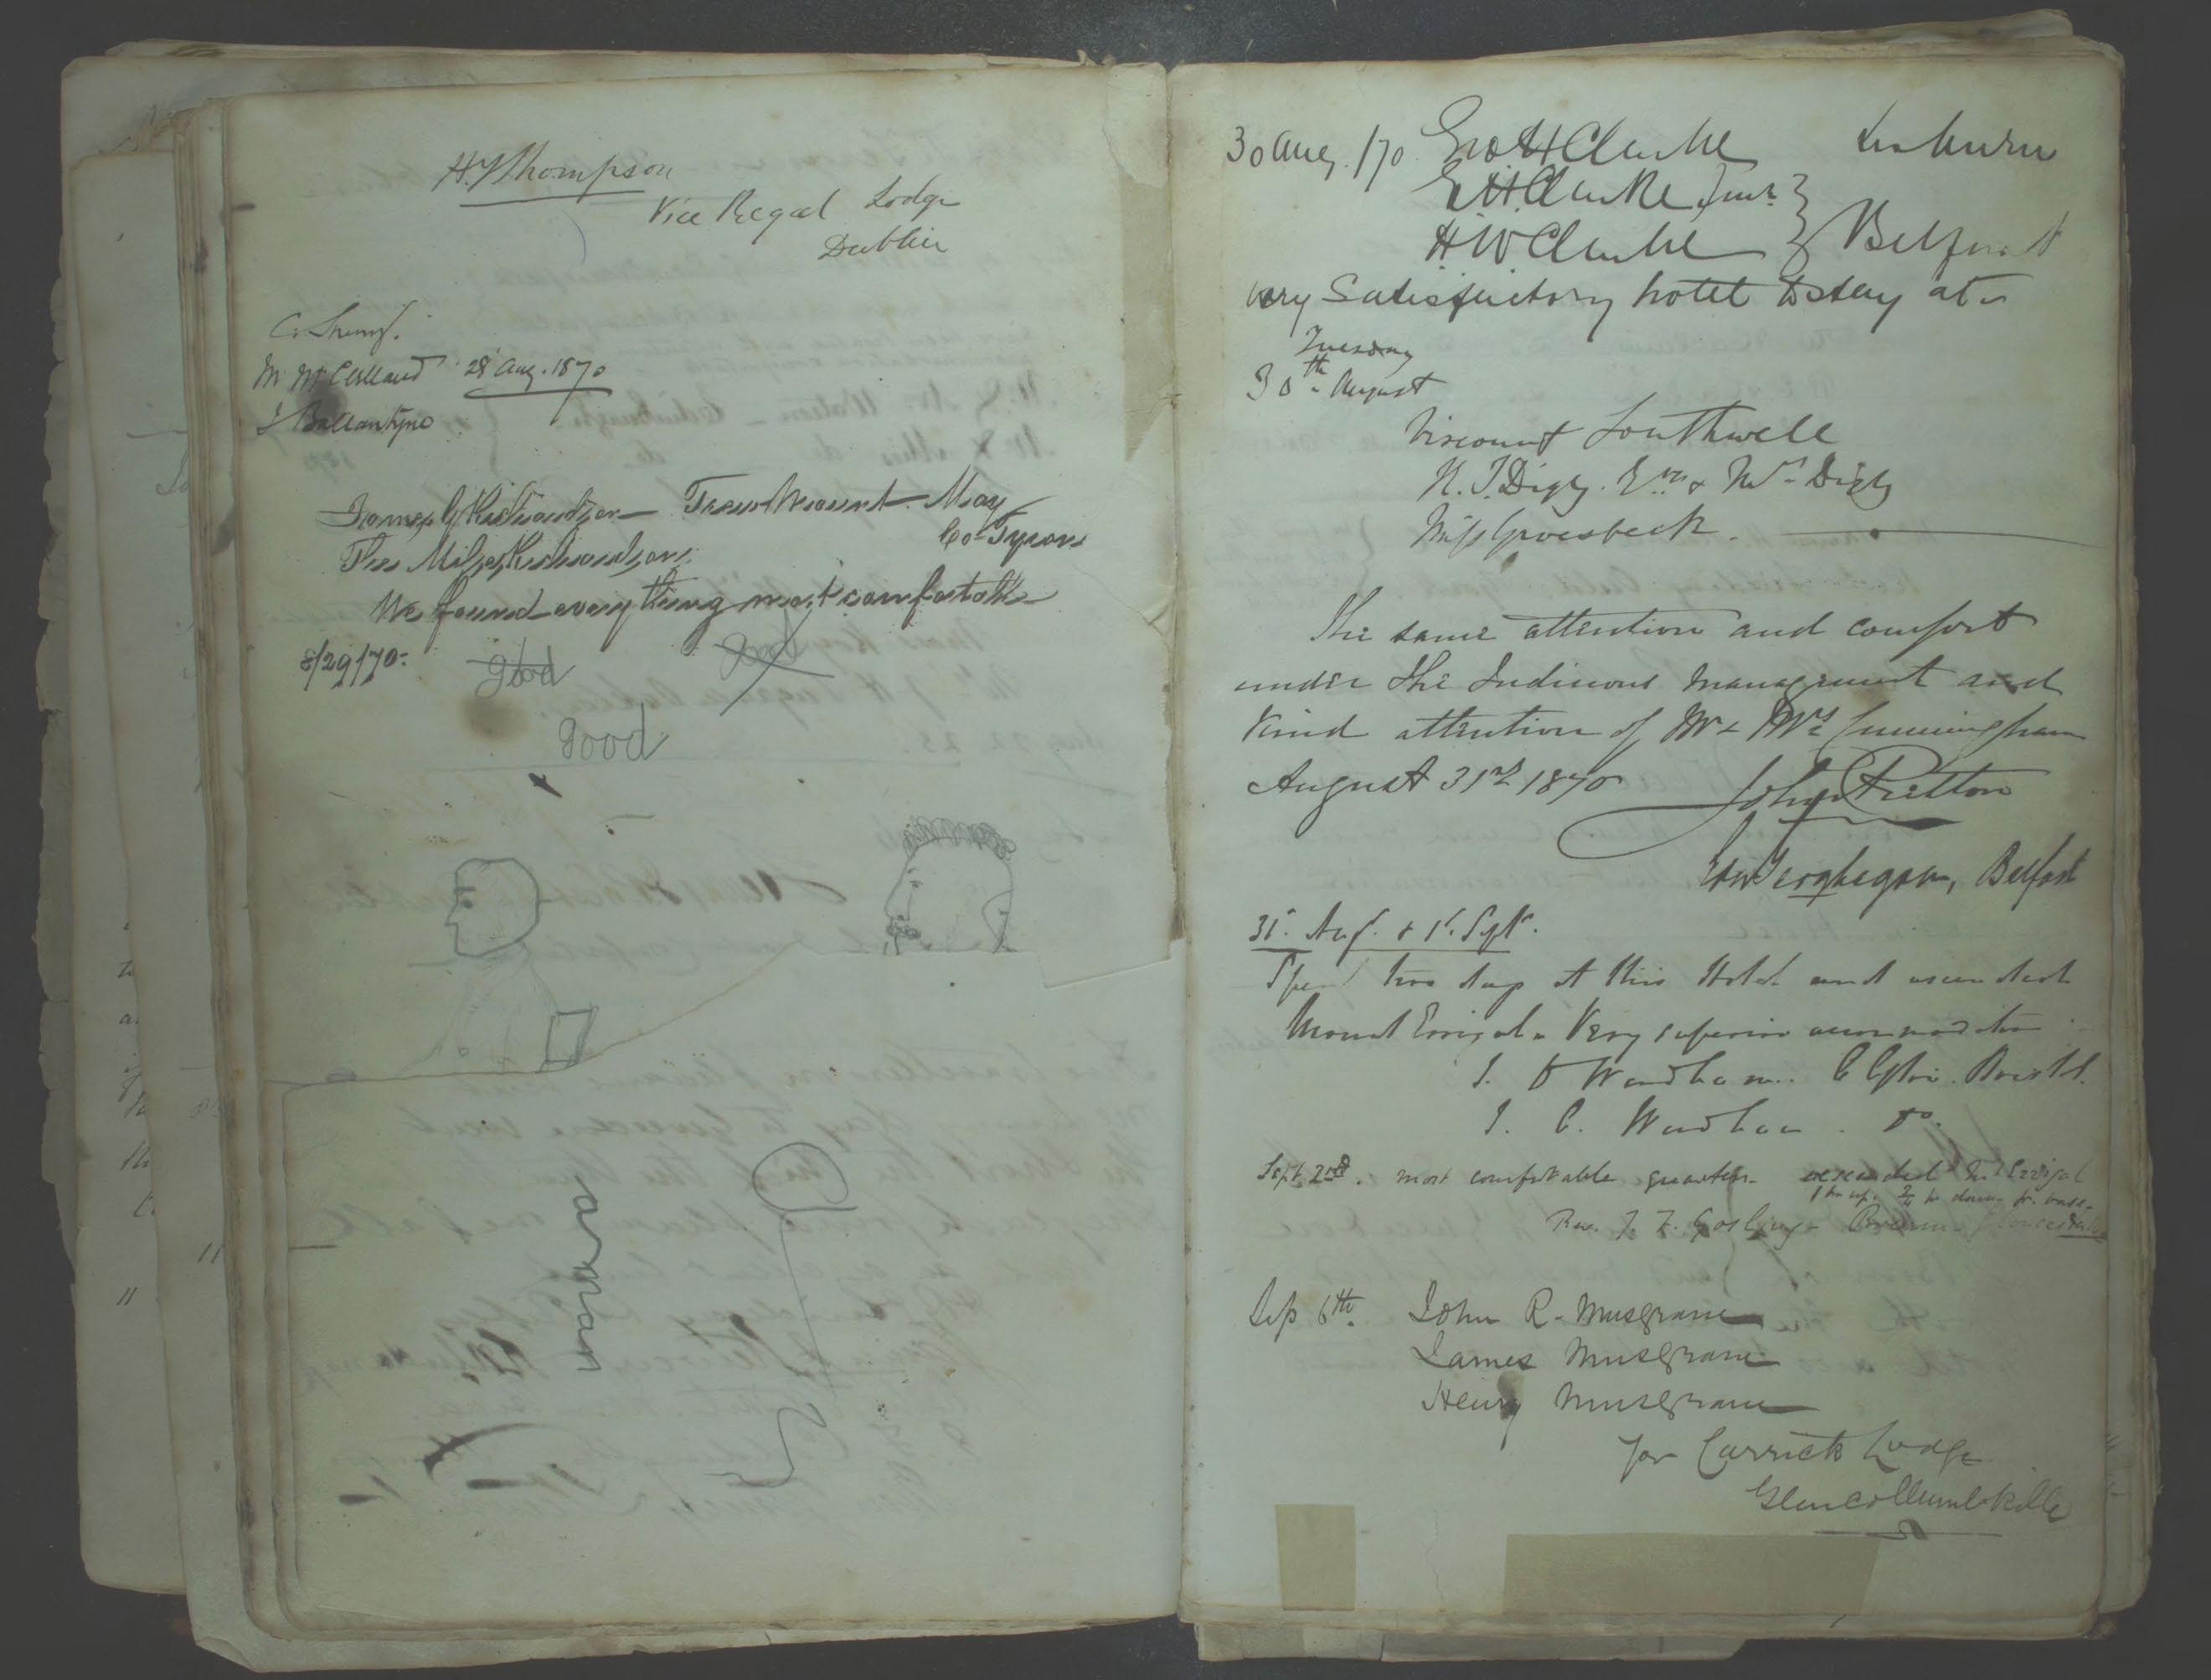 H. Y. Thompson
Vice Regal Lodge
Dublin
M McClelland 28 Aug. 1870
J Ballantyne
James G Richardson Trew Mount Moy
Co. Tyrone
Richardson
We found everything most comfortable
8/29/70.
good
good
30 Aug. /70 Geo H Clarke Lisburn
G H Clarke Junr.
H W Clarke Belfast
very Satisfactory hotel to stay at
Tuesday
30th August
Viscount Southwell
K. T. Digby. Esq. & Mrs. Digby
Miss Groesbeck.
The same attention and comfort
under the Judicious management and
kind attention of Mr & Mrs Cunningham
August 31st 1870 John Pretton
Belfast
31. Aug. & 1. Sept.
Spent two days at this Hotel and ascended
Mount Errigal. Very superior accommodation
J. D Wandham. Clifton. Bristol.
J. C. Wandham. Do.
Sept. 2nd. most comfortable quarters. ascended Mt Errigal
1 hr up. 3/4 hr down fr. base.
Rev. J. F. Gosling
Sep 6th. John R. Musgrave
James Musgrave
Henry Musgrave
for Carrick Lodge
Glencollumbkille